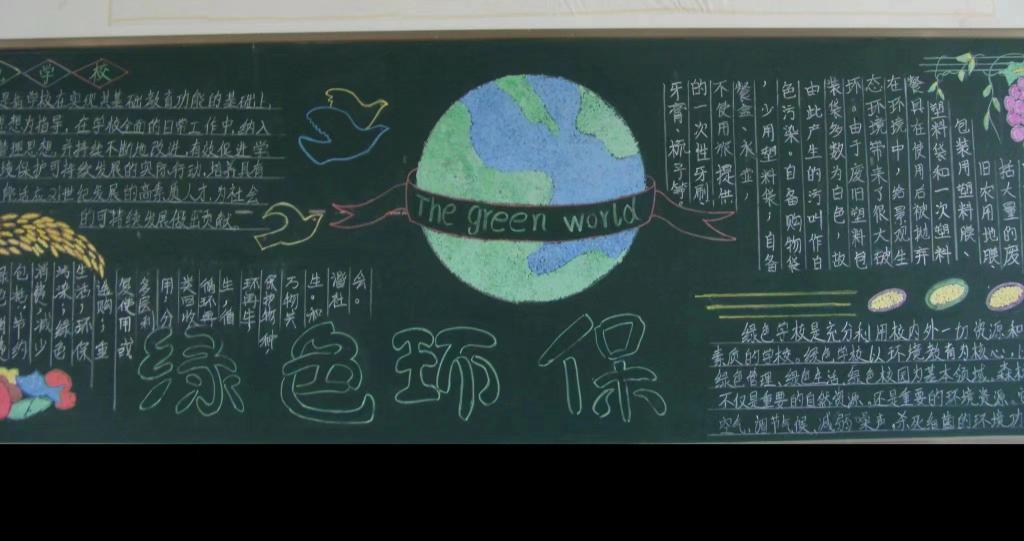 色学校
是指学校在实现其基础教育功能的基础上,
思想为指导,在学校全面的日常工作中,纳入
管理思想,并持续不断地改进,有效促进学
境保护可持续发展的实际行动,培养具有
能适应21世纪发展的高素质人才,为社会
的可持续发展做出贡献。
The green world
绿色环保
括大量的废
旧农用地膜、
包装用塑料膜、
塑料袋和一次塑料
餐具在使用后被抛弃
在环境中,给景观生
态环境带来了很大破
环。由于废旧塑料包
装袋多数为白色,故
由此产生的污叫作白
色污染。自备购物袋
,少用塑料袋,自备
餐盒、水
不使用旅提供
的一次性牙刷、
牙膏、梳子等。
会。
谐社
生。和
万物共
保护物种,
环再生
生,循
循环再
类回收
用,分
多次利
复使用或
选购,重
生活,环保
污染;绿色
消费,减少
包括:节约
绿色学校是充分利用校内外一切资源和
素质的学校。绿色学校以环境教育为核心,
绿色管理、绿色生活、绿色校园为基本
不仅是重要的自然资源,还是重要的环境资源,
空气、调节气候、减弱噪声、杀灭细菌的环境功